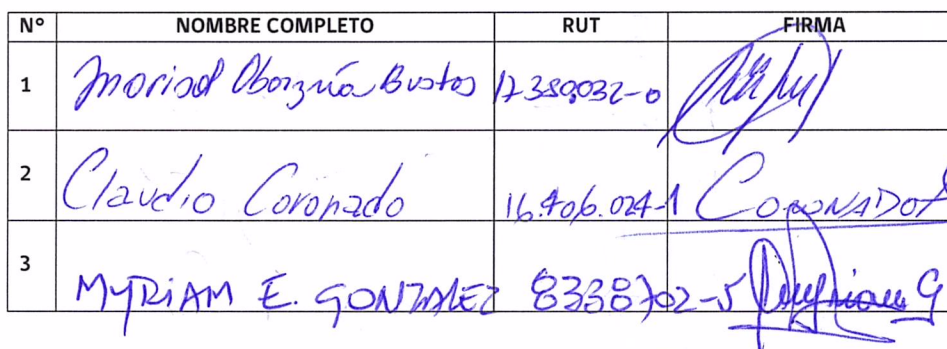 N° NOMBRE COMPLETO RUT FIRMA
1 Marisol Oborzúa Bustos 17389032-0
2 Claudio Coronado 16.406.024-1 CORONADO
3 MYRIAM E. GONZALEZ 8338702-5 Myriam G